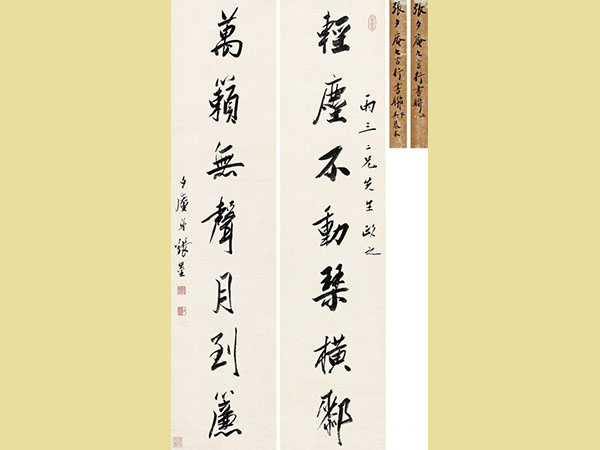 張夕庵七言行書聯上
張夕庵七言行書聯下
雨三二兄先生政之
輕塵不動琴橫䣛
萬籟無聲月到簾
夕庵弟張崟